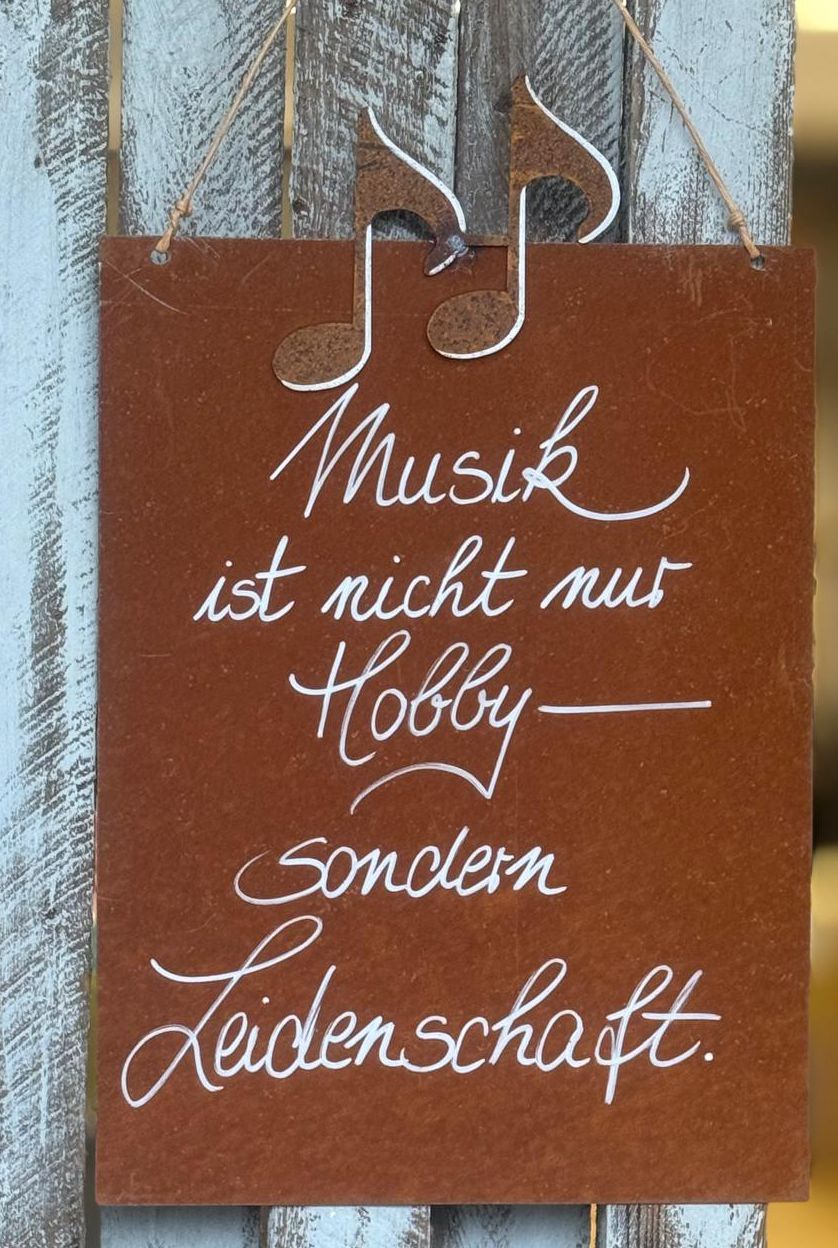 Musik
ist nicht nur
Hobby —
sondern
Leidenschaft.